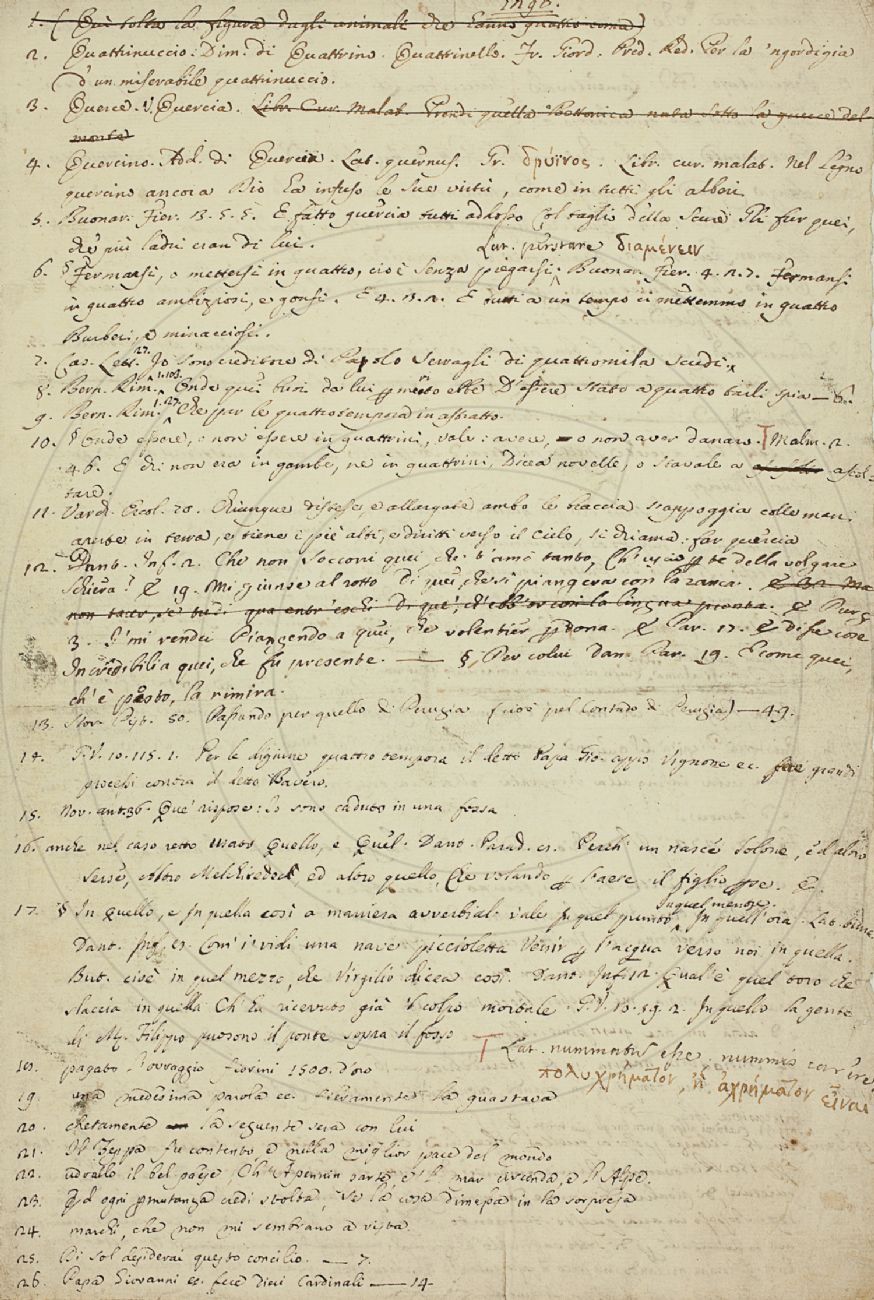 1. ( Qui solea la figura degli animali che hanno quattro corna)
2. Quattrinuccio. Dim. di Quattrino. Quattrinello. Fr. Giord. Pred. Red. Per la 'ngordigia
d'un miserabile quattrinuccio.
3. Querce. V. Quercia. Libr. Cur. Malat. Prendi quella Bettonica nata sotto la querce del
monte
4. Quercino. Add. di Quercia. Lat. quernus. Gr. δρύϊνος. Libr. cur. malat. Nel legno
quercino ancora Dio ha infuso le sue virtù, come in tutti gli alberi.
5. Buonar. Fier. 3. 5. 5. E fatto quercia tutti addosso Col taglio della scure Gli fur quei,
che più ladri eran di lui.
Lat. perstare διαμένειν
6. § Fermarsi, o mettersi in quattro, cioè senza piegarsi. Buonar. Fier. 4. 2. 7. Fermansi
in quattro ambiziosi, e gonfi. E 4. 2. E tutti a un tempo ci mettemmo in quattro
Burberi, e minacciosi.
7. Cas. Lett. 27. Io sono creditore di Paolo Serragli di quattromila scudi.
8. Bern. Rim. 1. 103. Onde quei da lui merto ebbe D'essere stato a quattro Baili spia — 6.
9. Bern. Rim. 1. 27. Che par le quattrotempora in astratto.
10. § Onde essere, o non essere in quattrini, vale: avere, o non aver danaro. T Malm. 2.
46. E chi non era in gambe, nè in quattrini, Dicea novelle, o stavale a ascol-
tare.
11. Varch. Ercol. 20. Chiunque distese, e allargate ambo le braccia s'appoggia colle mani
aperte in terra, e tiene i piè alti, e diritti verso il Cielo, si chiama: far quercia
12. Dant. Inf. 2. Che non soccorri quei, che t'amò tanto, Ch'uscìo per te della volgare
schiera? E 19. Mi giunse al rotto Di quei, che sì piangeva con la zanca. E 32. Ma
non tacer, se tu di qua entr' eschi Di que', ch'ebb' or così la lingua pronta. E Purg.
3. I' mi rendei Piangendo a quei, che volentier perdona. E Par. 17. E disse cose
Incredibili a quei, che fu presente. — §. Per colui Dan. Par. 19. E come quei,
ch'è pasto, la rimira.
13. Stor. Pist. 50. Passando per quello di Perugia (cioè pel Contado di Perugia) — 49.
14. G. V. 10. 115. 1. Per le digiune quattro tempora il detto Papa Gio. appo Vignone ec. fece grandi
processi contra il detto Bavero.
15. Nov. ant. 36. Que' rispose: Io sono caduto in una fossa
16. anche nel caso retto usato Quello, e Quel. Dant. Parad. 8. Perch' un nasce Solone, ed altro
Serse, Altro Melchisedech, ed altro quello, Che volando per l'aere il figlio perse. E.
17. § In quello, e In quella così a maniera avverbial. vale In quel punto, In quel mentre, In quell'ora. Lat.
Dant. Inf. 8. Com' i' vidi una nave piccioletta Venir per l'acqua verso noi in quella.
But. cioè in quel mezzo, che Virgilio dicea così. Dant. Inf. 12. Qual è quel toro che
slaccia in quella Ch'ha ricevuto già 'l colpo mortale. G. V. 10. 59. 2. In quello la gente
di M. Filippo puosono il ponte sopra il fosso
T Lat. nummatum esse. nummis carere
πολυχρήματον, ἢ ἀχρήματον εἶναι
18. pagato l'ovraggio fiorini 1500. d'oro
19. una medesima parola ec. fieramente la guastava
20. chetamente la seguente sera con lui
21. Il Zeppa fu contento e nella miglior pace del mondo
22. udrallo il bel paese, Ch'Apennin parte, e 'l mar circonda, e l'Alpe.
23. Ed ogni permutanza credi stolta, Se la cosa dimessa in la sorpresa
24. marchi, che non mi sembrano a vista
25. Di sol desiderai questo concilio. — 7.
26. Papa Giovanni ec. fece Dieci Cardinali — 14